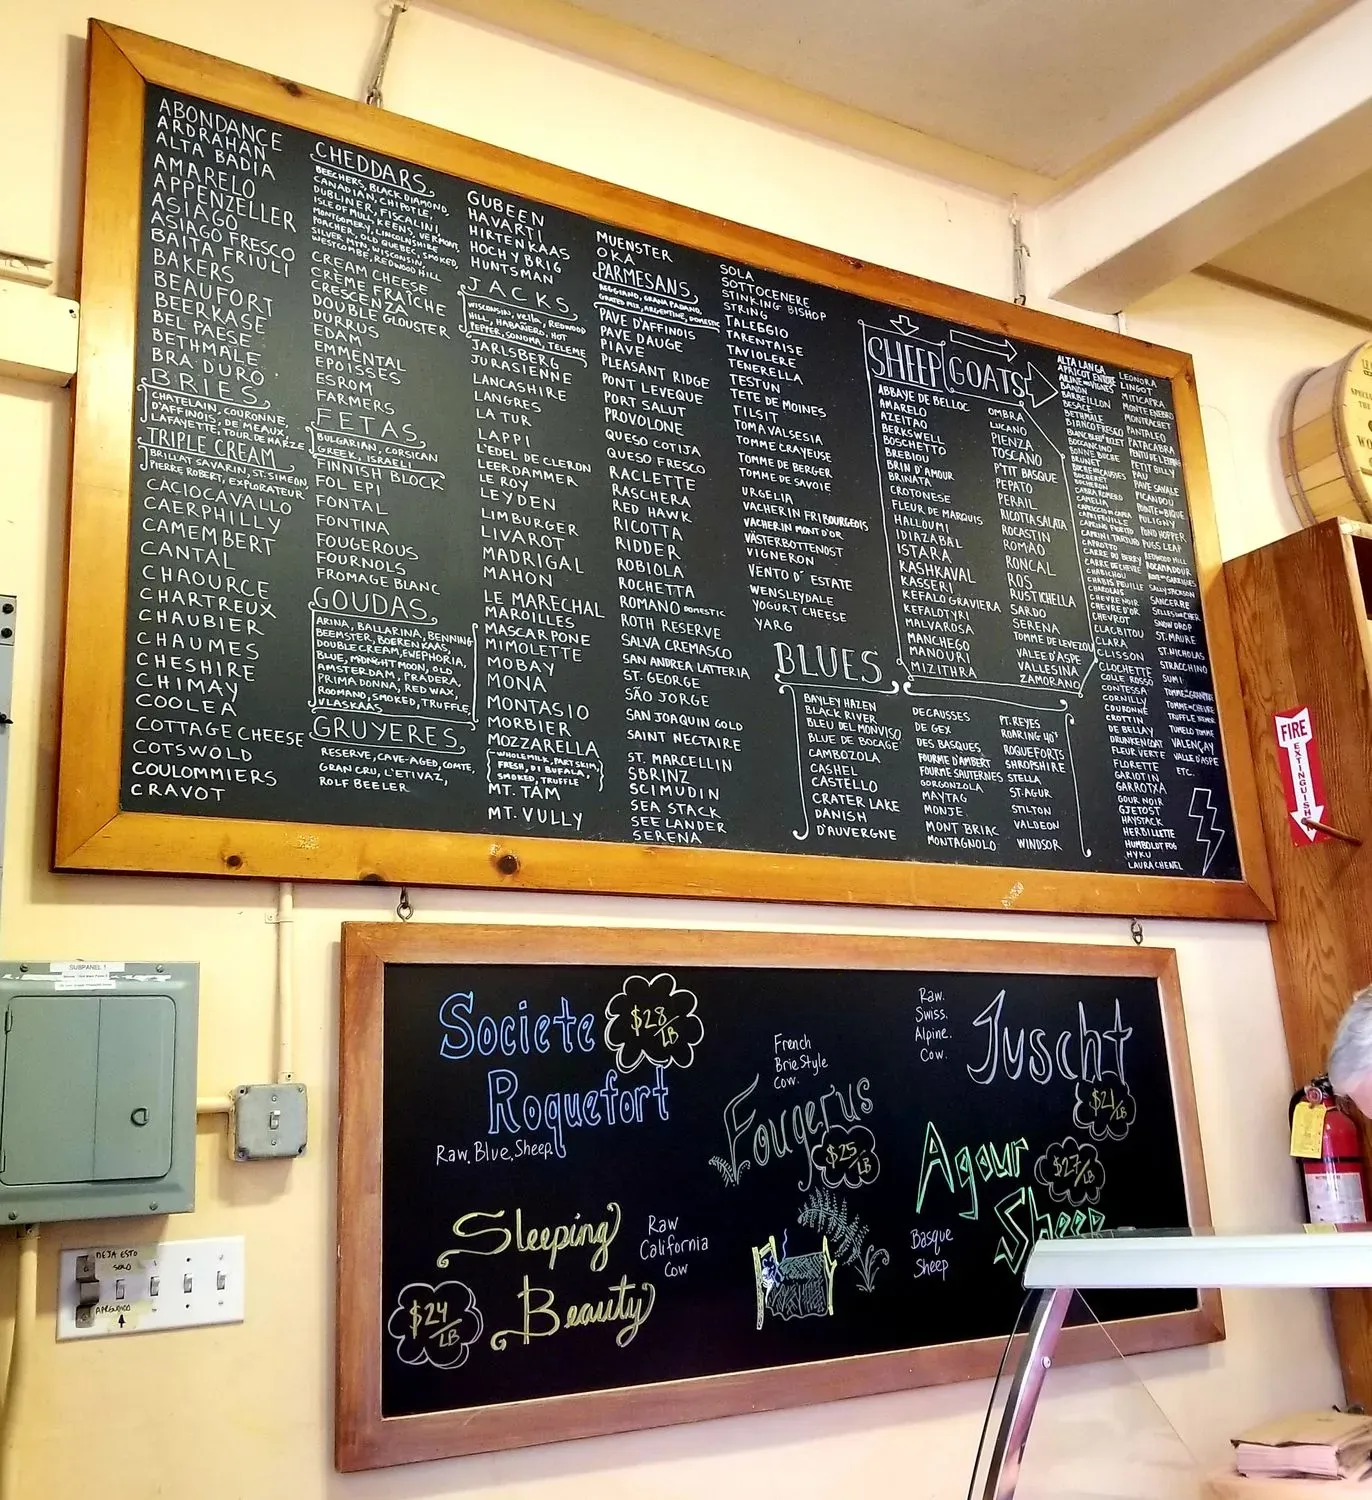 ABONDANCE
ARDRAHAN
ALTA BADIA
AMARELO
APPENZELLER
ASIAGO
ASIAGO FRESCO
BAITA FRIULI
BAKERS
BEAUFORT
BEERKASE
BEL PAESE
BETHMALE
BRA DURO
BRIES
CHATELAIN, COURONNE,
D'AFFINOIS, DE MEAUX,
LAFAYETTE, TOUR DE MARZE
TRIPLE CREAM
BRILLAT SAVARIN, ST. SIMEON,
PIERRE ROBERT, EXPLORATEUR
CACIOCAVALLO
CAERPHILLY
CAMEMBERT
CANTAL
CHAOURCE
CHARTREUX
CHAUBIER
CHAUMES
CHESHIRE
CHIMAY
COOLEA
COTTAGE CHEESE
COTSWOLD
COULOMMIERS
CRAVOT
CHEDDARS
BEECHERS, BLACK DIAMOND,
CANADIAN, CHIPOTLE,
DUBLINER, FISCALINI,
ISLE OF MULL, KEENS, VERMONT,
MONTGOMERY, LINCOLNSHIRE
POACHER, OLD QUEBEC, SMOKED,
SILVER MTN, WISCONSIN,
WESTCOMBE, REDWOOD HILL
CREAM CHEESE
CRÈME FRAÎCHE
CRESCENZA
DOUBLE GLOUSTER
DURRUS
EDAM
EMMENTAL
EPOISSES
ESROM
FARMERS
FETAS
BULGARIAN, CORSICAN
GREEK, ISRAELI
FINNISH BLOCK
FOL EPI
FONTAL
FONTINA
FOUGEROUS
FOURNOLS
FROMAGE BLANC
GOUDAS
ARINA, BALLARINA, BENNING
BEEMSTER, BOERENKAAS,
DOUBLE CREAM, EWEPHORIA,
BLUE, MIDNIGHT MOON, OLD
AMSTERDAM, PRADERA,
PRIMA DONNA, RED WAX,
ROOMANO, SMOKED, TRUFFLE,
VLASKAAS
GRUYERES
RESERVE, CAVE-AGED, COMTE,
GRAN CRU, L'ETIVAZ,
ROLF BEELER
GUBEEN
HAVARTI
HIRTENKAAS
HOCH Y BRIG
HUNTSMAN
JACKS
WISCONSIN, VELLA, REDWOOD
HILL, HABAÑERO, HOT
PEPPER, SONOMA, TELEME
JARLSBERG
JURASIENNE
LANCASHIRE
LANGRES
LA TUR
LAPPI
L'EDEL DE CLERON
LEERDAMMER
LE ROY
LEYDEN
LIMBURGER
LIVAROT
MADRIGAL
MAHON
LE MARECHAL
MAROILLES
MASCARPONE
MIMOLETTE
MOBAY
MONA
MONTASIO
MORBIER
MOZZARELLA
WHOLEMILK, PART SKIM,
FRESH, DI BUFALA,
SMOKED, TRUFFLE
MT. TAM
MT. VULLY
MUENSTER
OKA
PARMESANS
REGGIANO, GRANA PADANO,
GRATED MIX, ARGENTINE, DOMESTIC
PAVE D'AFFINOIS
PAVE DAUGE
PIAVE
PLEASANT RIDGE
PONT LEVEQUE
PORT SALUT
PROVOLONE
QUESO COTIJA
QUESO FRESCO
RACLETTE
RASCHERA
RED HAWK
RICOTTA
RIDDER
ROBIOLA
ROCHETTA
ROMANO DOMESTIC
ROTH RESERVE
SALVA CREMASCO
SAN ANDREA LATTERIA
ST. GEORGE
SÃO JORGE
SAN JOAQUIN GOLD
SAINT NECTAIRE
ST. MARCELLIN
SBRINZ
SCIMUDIN
SEA STACK
SEELANDER
SERENA
SOLA
SOTTOCENERE
STINKING BISHOP
STRING
TALEGGIO
TARENTAISE
TAVIOLERE
TENERELLA
TESTUN
TETE DE MOINES
TILSIT
TOMA VALSESIA
TOMME CRAYEUSE
TOMME DE BERGER
TOMME DE SAVOIE
URGELIA
VACHERIN FRIBOURGEOIS
VACHERIN MONT D'OR
VÄSTERBOTTENOST
VIGNERON
VENTO D' ESTATE
WENSLEYDALE
YOGURT CHEESE
YARG
SHEEP
ABBAYE DE BELLOC
AMARELO
AZEITAO
BERKSWELL
BOSCHETTO
BREBIOU
BRIN D'AMOUR
BRINATA
CROTONESE
FLEUR DE MARQUIS
HALLOUMI
IDIAZABAL
ISTARA
KASHKAVAL
KASSERI
KEFALO GRAVIERA
KEFALOTYRI
MALVAROSA
MANCHEGO
MANOURI
MIZITHRA
OMBRA
LUCANO
PIENZA
TOSCANO
P'TIT BASQUE
PEPATO
PERAIL
RICOTTA SALATA
ROCASTIN
ROMAO
RONCAL
ROS
RUSTICHELLA
SARDO
SERENA
TOMME DE LEVEZOU
VALEE D'ASPE
VALLESINA
ZAMORANO
GOATS
ALTA LANGA
APRICOT ENTREE
BANON
BARBEILLON
BESACE
BETHMALE
BIANCO FRESCO
BOCCONO
BONNE BUCHE
BRUNET
BUCHERON
CABRA ROMERO
CAMELIA
CAPRIFEUILLE
CAPRINI TARTUFO
CAPROTTO
CARRE DU BERRY
CARRE DE CHEVRE
CHABICHOU
CHABIS FEUILLE
CHAROLAIS
CHEVRE NOIR
CHEVRE D'OR
CHEVROT
CLACBITOU
CLARA
CLISSON
CLOCHETTE
COLLE ROSSO
CONTESSA
CORNILLY
COURONNE
CROTTIN
DE BELLAY
DRUNKEN GOAT
FLEUR VERTE
FLORETTE
GARIOTIN
GARROTXA
GOUR NOIR
GJETOST
HAYSTACK
HERBILLETTE
HUMBOLDT FOG
HYKU
LAURA CHENEL
LEONORA
LINGOT
MITICAPRA
MONTE ENEBRO
MONTRACHET
PANTALEO
PATACABRA
PETIT BILLY
PAU
PAVE SAVALE
PICANDOU
PULIGNY
POND HOPPER
PUGS LEAP
REDWOOD HILL
ROCAMADOUR
SALLY JACKSON
SANCERRE
SELLES SUR CHER
SNOW DROP
ST. MAURE
ST. NICHOLAS
STRACCHINO
SUMI
TOMME DE CHEVRE
TRUFFLE TREMOR
TUMELO TOMME
VALENÇAY
VALLE D'ASPE
ETC.
BLUES
BAYLEY HAZEN
BLACK RIVER
BLEU DEL MONVISO
BLUE DE BOCAGE
CAMBOZOLA
CASHEL
CASTELLO
CRATER LAKE
DANISH
D'AUVERGNE
DECAUSSES
DE GEX
DES BASQUES
FOURME D'AMBERT
FOURME SAUTERNES
GORGONZOLA
MAYTAG
MONJE
MONT BRIAC
MONTAGNOLO
PT. REYES
ROARING 40'S
ROQUEFORTS
SHROPSHIRE
STELLA
ST. AGUR
STILTON
VALDEON
WINDSOR
FIRE
EXTINGUISHER
Societe
Roquefort
$28/LB
Raw, Blue, Sheep.
French
Brie Style
Cow.
Fougerus
$25/LB
Raw.
Swiss.
Alpine.
Cow.
Juscht
$21/LB
Agour
Sheep
$27/LB
Basque
Sheep
Sleeping
Beauty
$24/LB
Raw
California
Cow
SUBPANEL 1
DEJA ESTO
SOLO
APAGADO